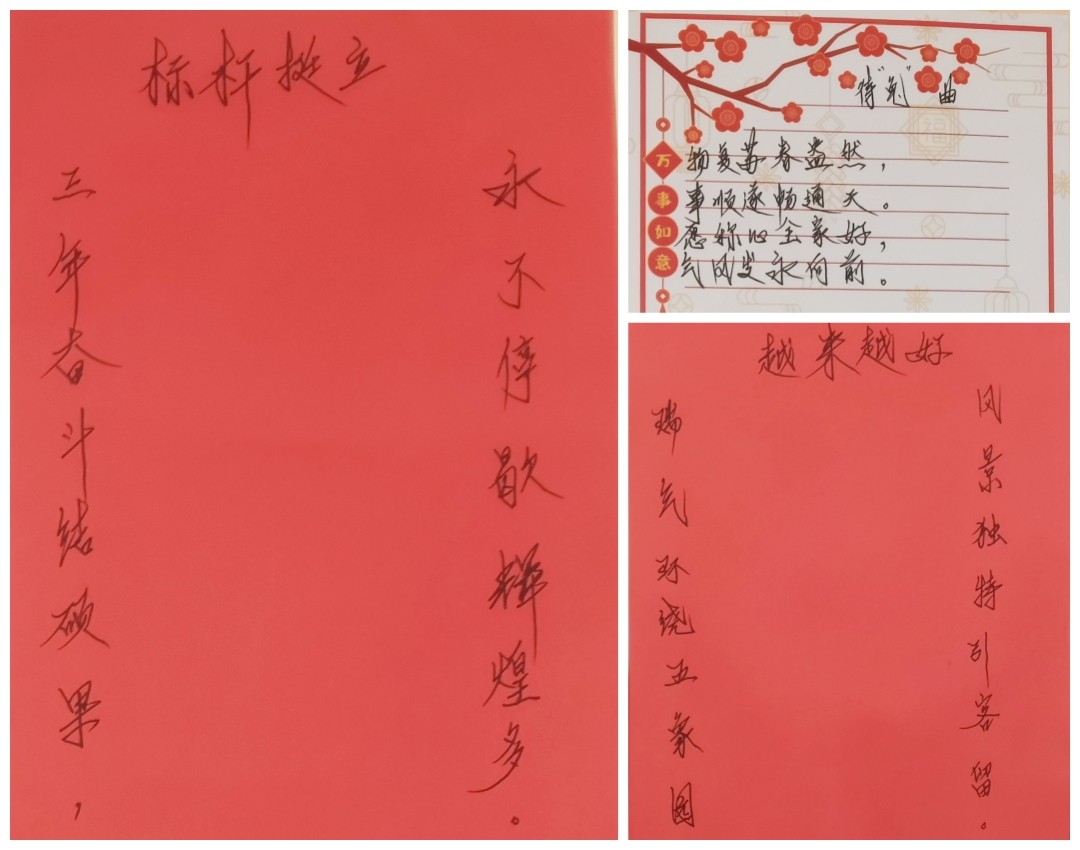 标杆挺立
三年奋斗结硕果，
永不停歇辉煌多。
特“兔”曲
万物复苏春盎然，
事事顺遂畅通天。
如愿称心全家好，
意气风发永向前。
福
越来越好
瑞气环绕五象
风景独特引客留。